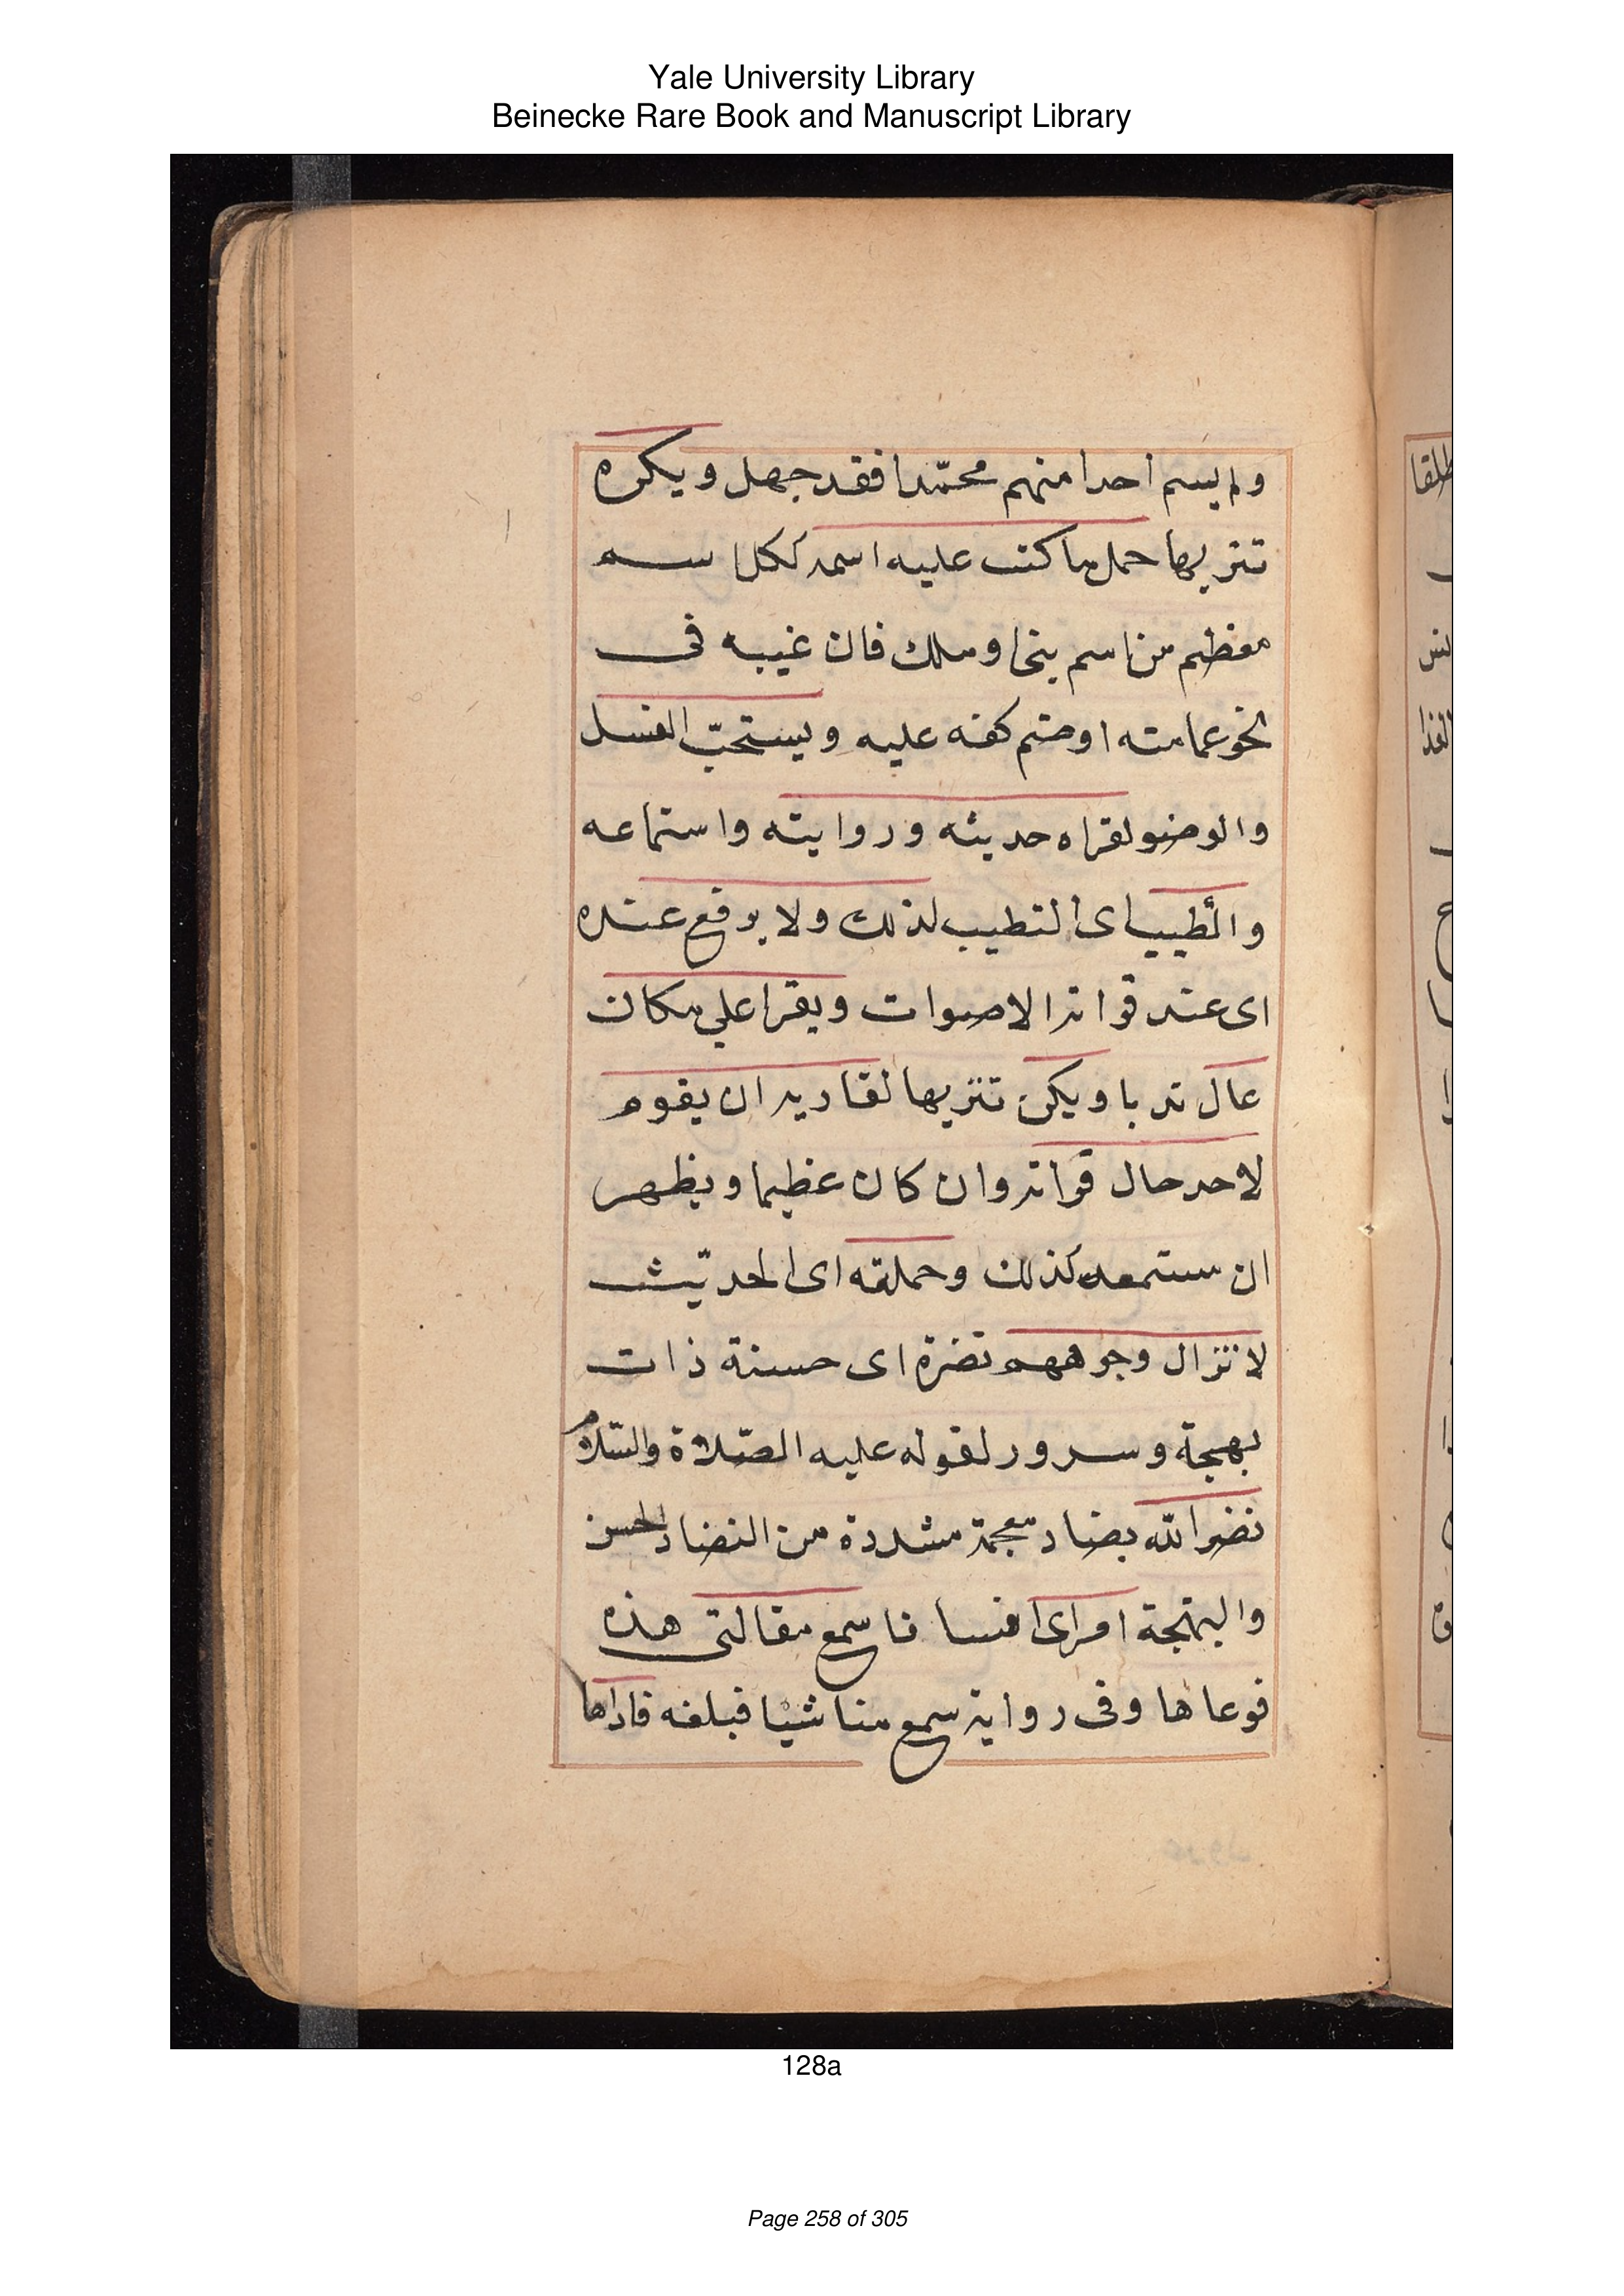 Yale University Library
Beinecke Rare Book and Manuscript Library
ولم يسم احدا منهم محمّدا فقد جهل ويكره
تنزيها حمل ما كتب عليه اسمه ككل اسم
معظم من اسم نبى او ملك فان غيبه فى
نحو عمامته او ضم كفه عليه ويستحبّ الغسل
والوضو لقراه حديثه وروايته واستماعه
والطيب اى التطيب لذلك ولا يرفع عنده
اى عند قراته الاصوات ويقرا على مكان
عال ندبا ويكره تنزيها لقاريه ان يقوم
لاحد حال قراته وان كان عظيما ويظهر
ان مستمعه كذلك وحملته اى الحديث
لا تزال وجوههم نضرة اى حسنة ذات
بهجة وسرور لقوله عليه الصّلاة والسّلام
نضر الله بضاد معجمة مشددة من النضار الحسن
والبهجة امرا اى انسانا سمع مقالتى هذه
فوعاها وفى رواية سمع منا شيا فبلغه فاداها
طلقا
128a
Page 258 of 305